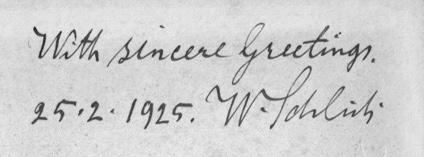 With sincere Greetings.
25·2·1925. W. Schlich